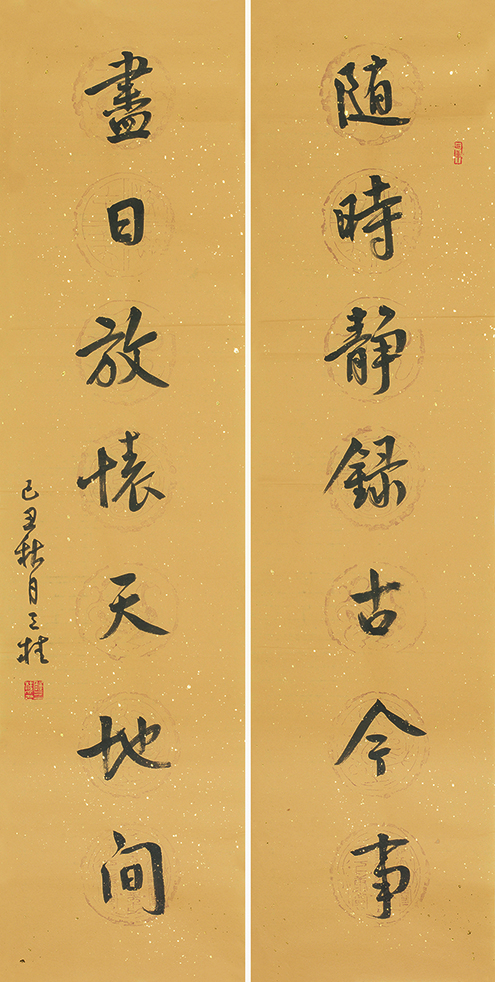 随時静録古今事
盡日放懷天地間
己丑秋月三桂